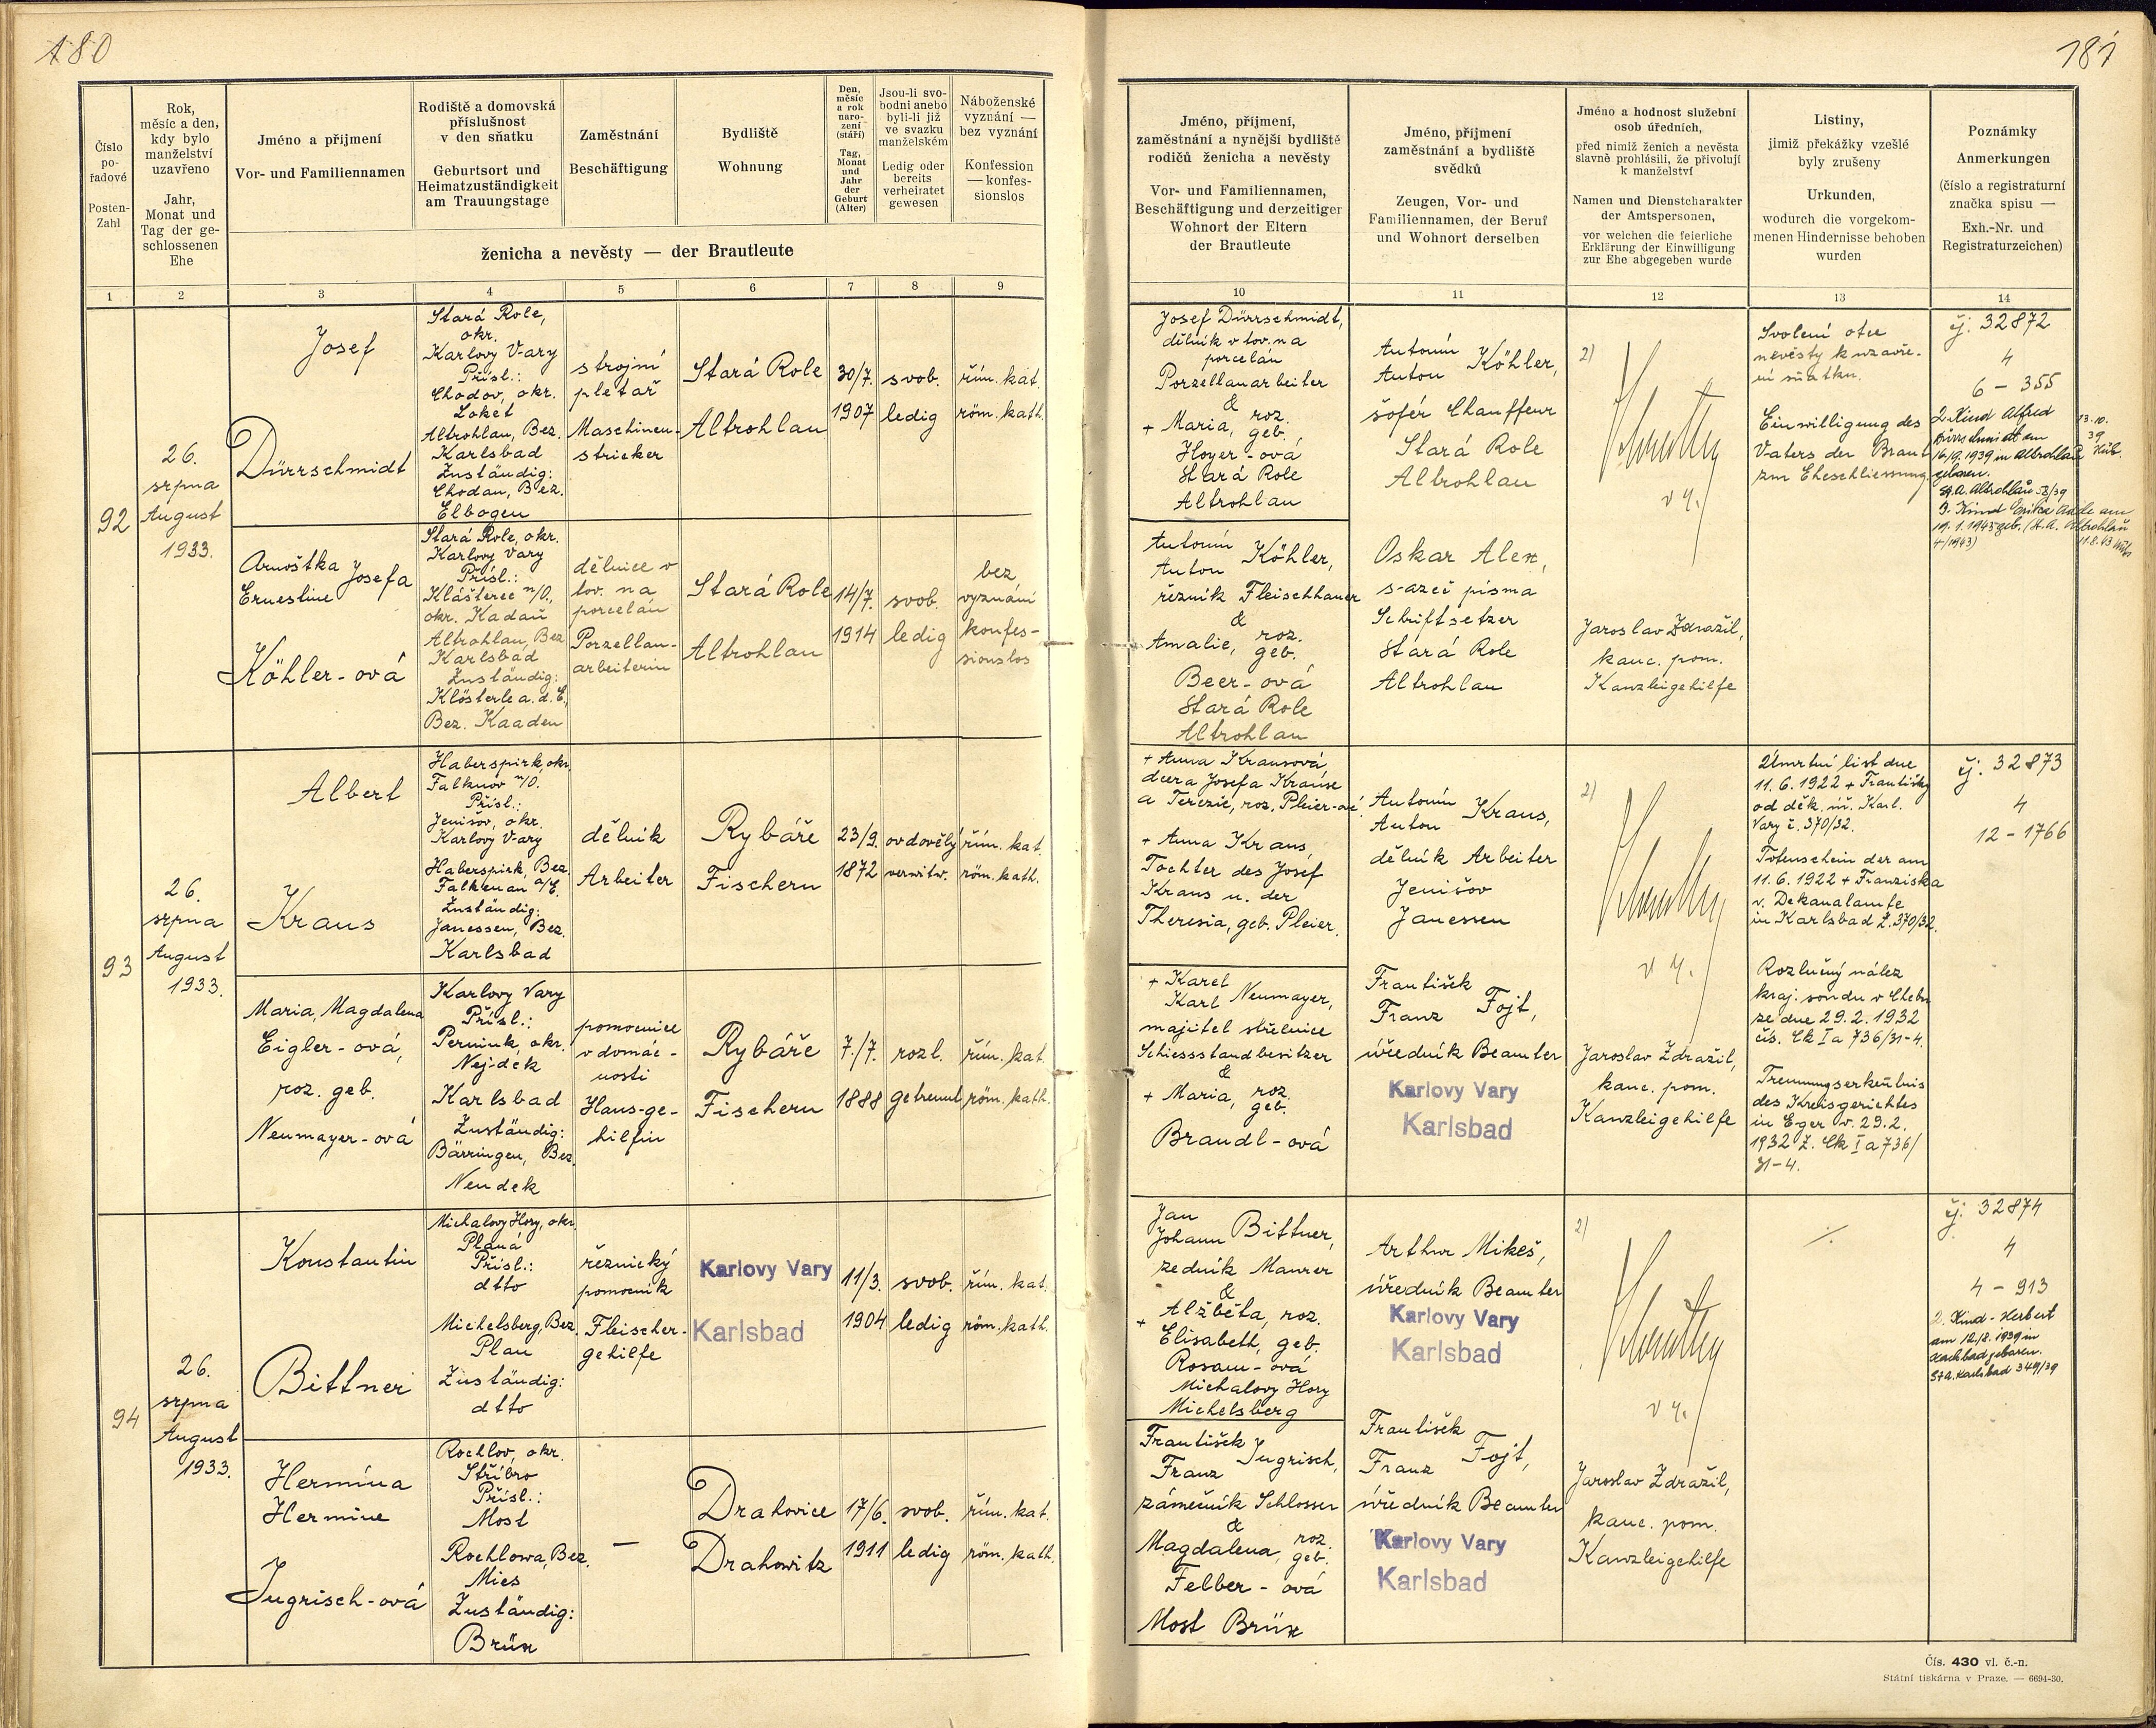 180
181
Číslo
po-
řadové
Posten-
Zahl
Rok,
měsíc a den,
kdy bylo
manželství
uzavřeno
Jahr,
Monat und
Tag der ge-
schlossenen
Ehe
Jméno a příjmení
Vor- und Familiennamen
Rodiště a domovská
příslušnost
v den sňatku
Geburtsort und
Heimatzuständigkeit
am Trauungstage
Zaměstnání
Beschäftigung
Bydliště
Wohnung
Den,
měsíc
a rok
naro-
zení
(stáří)
Tag,
Monat
und
Jahr
der
Geburt
(Alter)
Jsou-li svo-
bodni anebo
byli-li již
ve svazku
manželském
Ledig oder
bereits
verheiratet
gewesen
Náboženské
vyznání —
bez vyznání
Konfession
— konfes-
sionslos
ženicha a nevěsty — der Brautleute
Jméno, příjmení,
zaměstnání a nynější bydliště
rodičů ženicha a nevěsty
Vor- und Familiennamen,
Beschäftigung und derzeitiger
Wohnort der Eltern
der Brautleute
Jméno, příjmení
zaměstnání a bydliště
svědků
Zeugen, Vor- und
Familiennamen, der Beruf
und Wohnort derselben
Jméno a hodnost služební
osob úředních,
před nimiž ženich a nevěsta
slavně prohlásili, že přivolují
k manželství
Namen und Dienstcharakter
der Amtspersonen,
vor welchen die feierliche
Erklärung der Einwilligung
zur Ehe abgegeben wurde
Listiny,
jimiž překážky vzešlé
byly zrušeny
Urkunden,
wodurch die vorgekom-
menen Hindernisse behoben
wurden
Poznámky
Anmerkungen
(číslo a registraturní
značka spisu —
Exh.-Nr. und
Registraturzeichen)
1 2 3 4 5 6 7 8 9 10 11 12 13 14
92
26.
srpna
August
1933.
Josef
Dürrschmidt
Stará Role,
okr.
Karlovy Vary
Přísl.:
Chodov, okr.
Loket
Altrohlau, Bez.
Karlsbad
Zuständig:
Chodau, Bez.
Elbogen
strojní
pletař
Maschinen-
stricker
Stará Role
Altrohlau
30/7.
1907
svob.
ledig
řím. kat.
röm. kath.
Josef Dürrschmidt,
dělník v tov. na
porcelán
Porzellanarbeiter
&
+ Maria, roz.
geb.
Hoyer-ová
Stará Role
Altrohlau
Antonín
Anton Köhler,
šofér Chauffeur
Stará Role
Altrohlau
2)
v z.
Svolení otce
nevěsty k uzavře-
ní sňatku.
Einwilligung des
Vaters der Braut
zur Eheschliessung.
čj. 32872
4
6 - 355
2. Kind Alfred
Dürrschmidt am
16/9. 1939 in Altrohlau
geboren.
St. A. Altrohlau
3. Kind Erika
19. 1. 1943 geb. (St. A. Altrohlau
4/1943)
Arnoštka Josefa
Ernestine
Köhler-ová
Stará Role, okr.
Karlovy Vary
Přísl.:
Klášterec n/O.,
okr. Kadaň
Altrohlau, Bez.
Karlsbad
Zuständig:
Klösterle a. d. E.,
Bez. Kaaden
dělnice v
tov. na
porcelán
Porzellan-
arbeiterin
Stará Role
Altrohlau
14/7.
1914
svob.
ledig
bez
vyznání
konfes-
sionslos
Antonín
Anton Köhler,
řezník Fleischhauer
&
Amalie, roz.
geb.
Beer-ová
Stará Role
Altrohlau
Oskar Alex,
sazeč písma
Schriftsetzer
Stará Role
Altrohlau
Jaroslav Zdražil,
kanc. pom.
Kanzleigehilfe
93
26.
srpna
August
1933.
Albert
Kraus
Haberspirk, okr.
Falknov n/O.
Přísl.:
Jenišov, okr.
Karlovy Vary
Haberspirk, Bez.
Falkenau a/E.
Zuständig:
Janessen, Bez.
Karlsbad
dělník
Arbeiter
Rybáře
Fischern
23/9.
1872
ovdovělý
verwitw.
řím. kat.
röm. kath.
+ Anna Krausová
dcera Josefa Krause
a Terezie, roz. Pleier-ové.
+ Anna Kraus,
Tochter des Josef
Kraus u. der
Theresia, geb. Pleier.
Antonín
Anton Kraus,
dělník Arbeiter
Jenišov
Janessen
2)
v z.
Úmrtní list dne
11. 6. 1922 + Františky
od děk. úř. Karl.
Vary č. 370/32.
Totenschein der am
11. 6. 1922 + Franziska
v. Dekanalamte
in Karlsbad Z. 370/32.
čj. 32873
4
12 - 1766
Maria, Magdalena
Eigler-ová,
roz. geb.
Neumayer-ová
Karlovy Vary
Přísl.:
Pernink, okr.
Nejdek
Karlsbad
Zuständig:
Bärringen, Bez.
Neudek
pomocnice
v domác-
nosti
Haus-ge-
hilfin
Rybáře
Fischern
7./7.
1888
rozl.
getrennt
řím. kat.
röm. kath.
+ Karel
Karl Neumayer,
majitel střelnice
Schiessstandbesitzer
&
+ Maria, roz.
geb.
Brandl-ová
František
Franz Fojt,
úředník Beamter
Karlovy Vary
Karlsbad
Jaroslav Zdražil,
kanc. pom.
Kanzleigehilfe
Rozlučný nález
kraj. soudu v Chebu
ze dne 29. 2. 1932
čís. Ck I a 736/31-4.
Trennungserkentnis
des Kreisgerichtes
in Eger v. 29. 2.
1932 Z. Ck I a 736/
31-4.
94
26.
srpna
August
1933.
Konstantin
Bittner
Michalovy Hory, okr.
Planá
Přísl.:
dtto
Michelsberg, Bez.
Plan
Zuständig:
dtto
řeznický
pomocník
Fleischer-
gehilfe
Karlovy Vary
Karlsbad
11/3.
1904
svob.
ledig
řím. kat.
röm. kath.
Jan
Johann Bittner,
zedník Maurer
&
+ Alžběta, roz.
Elisabeth, geb.
Rosam-ová
Michalovy Hory
Michelsberg
Arthur Mikeš,
úředník Beamter
Karlovy Vary
Karlsbad
2)
v z.
./.
čj. 32874
4
4 - 913
2. Kind - Herbert
am 12/8. 1939 in
Karlsbad geboren.
StA. Karlsbad 349/39
Hermína
Hermine
Jugrisch-ová
Rochlov, okr.
Stříbro
Přísl.:
Most
Rochlowa, Bez.
Mies
Zuständig:
Brüx
—
Drahovice
Drahowitz
17/6.
1911
svob.
ledig
řím. kat.
röm. kath.
František
Franz Jugrisch,
zámečník Schlosser
&
Magdalena, roz.
geb.
Felber-ová
Most Brüx
František
Franz Fojt,
úředník Beamter
Karlovy Vary
Karlsbad
Jaroslav Zdražil,
kanc. pom.
Kanzleigehilfe
Čís. 430 vl. č.-n.
Státní tiskárna v Praze. — 6694-30.